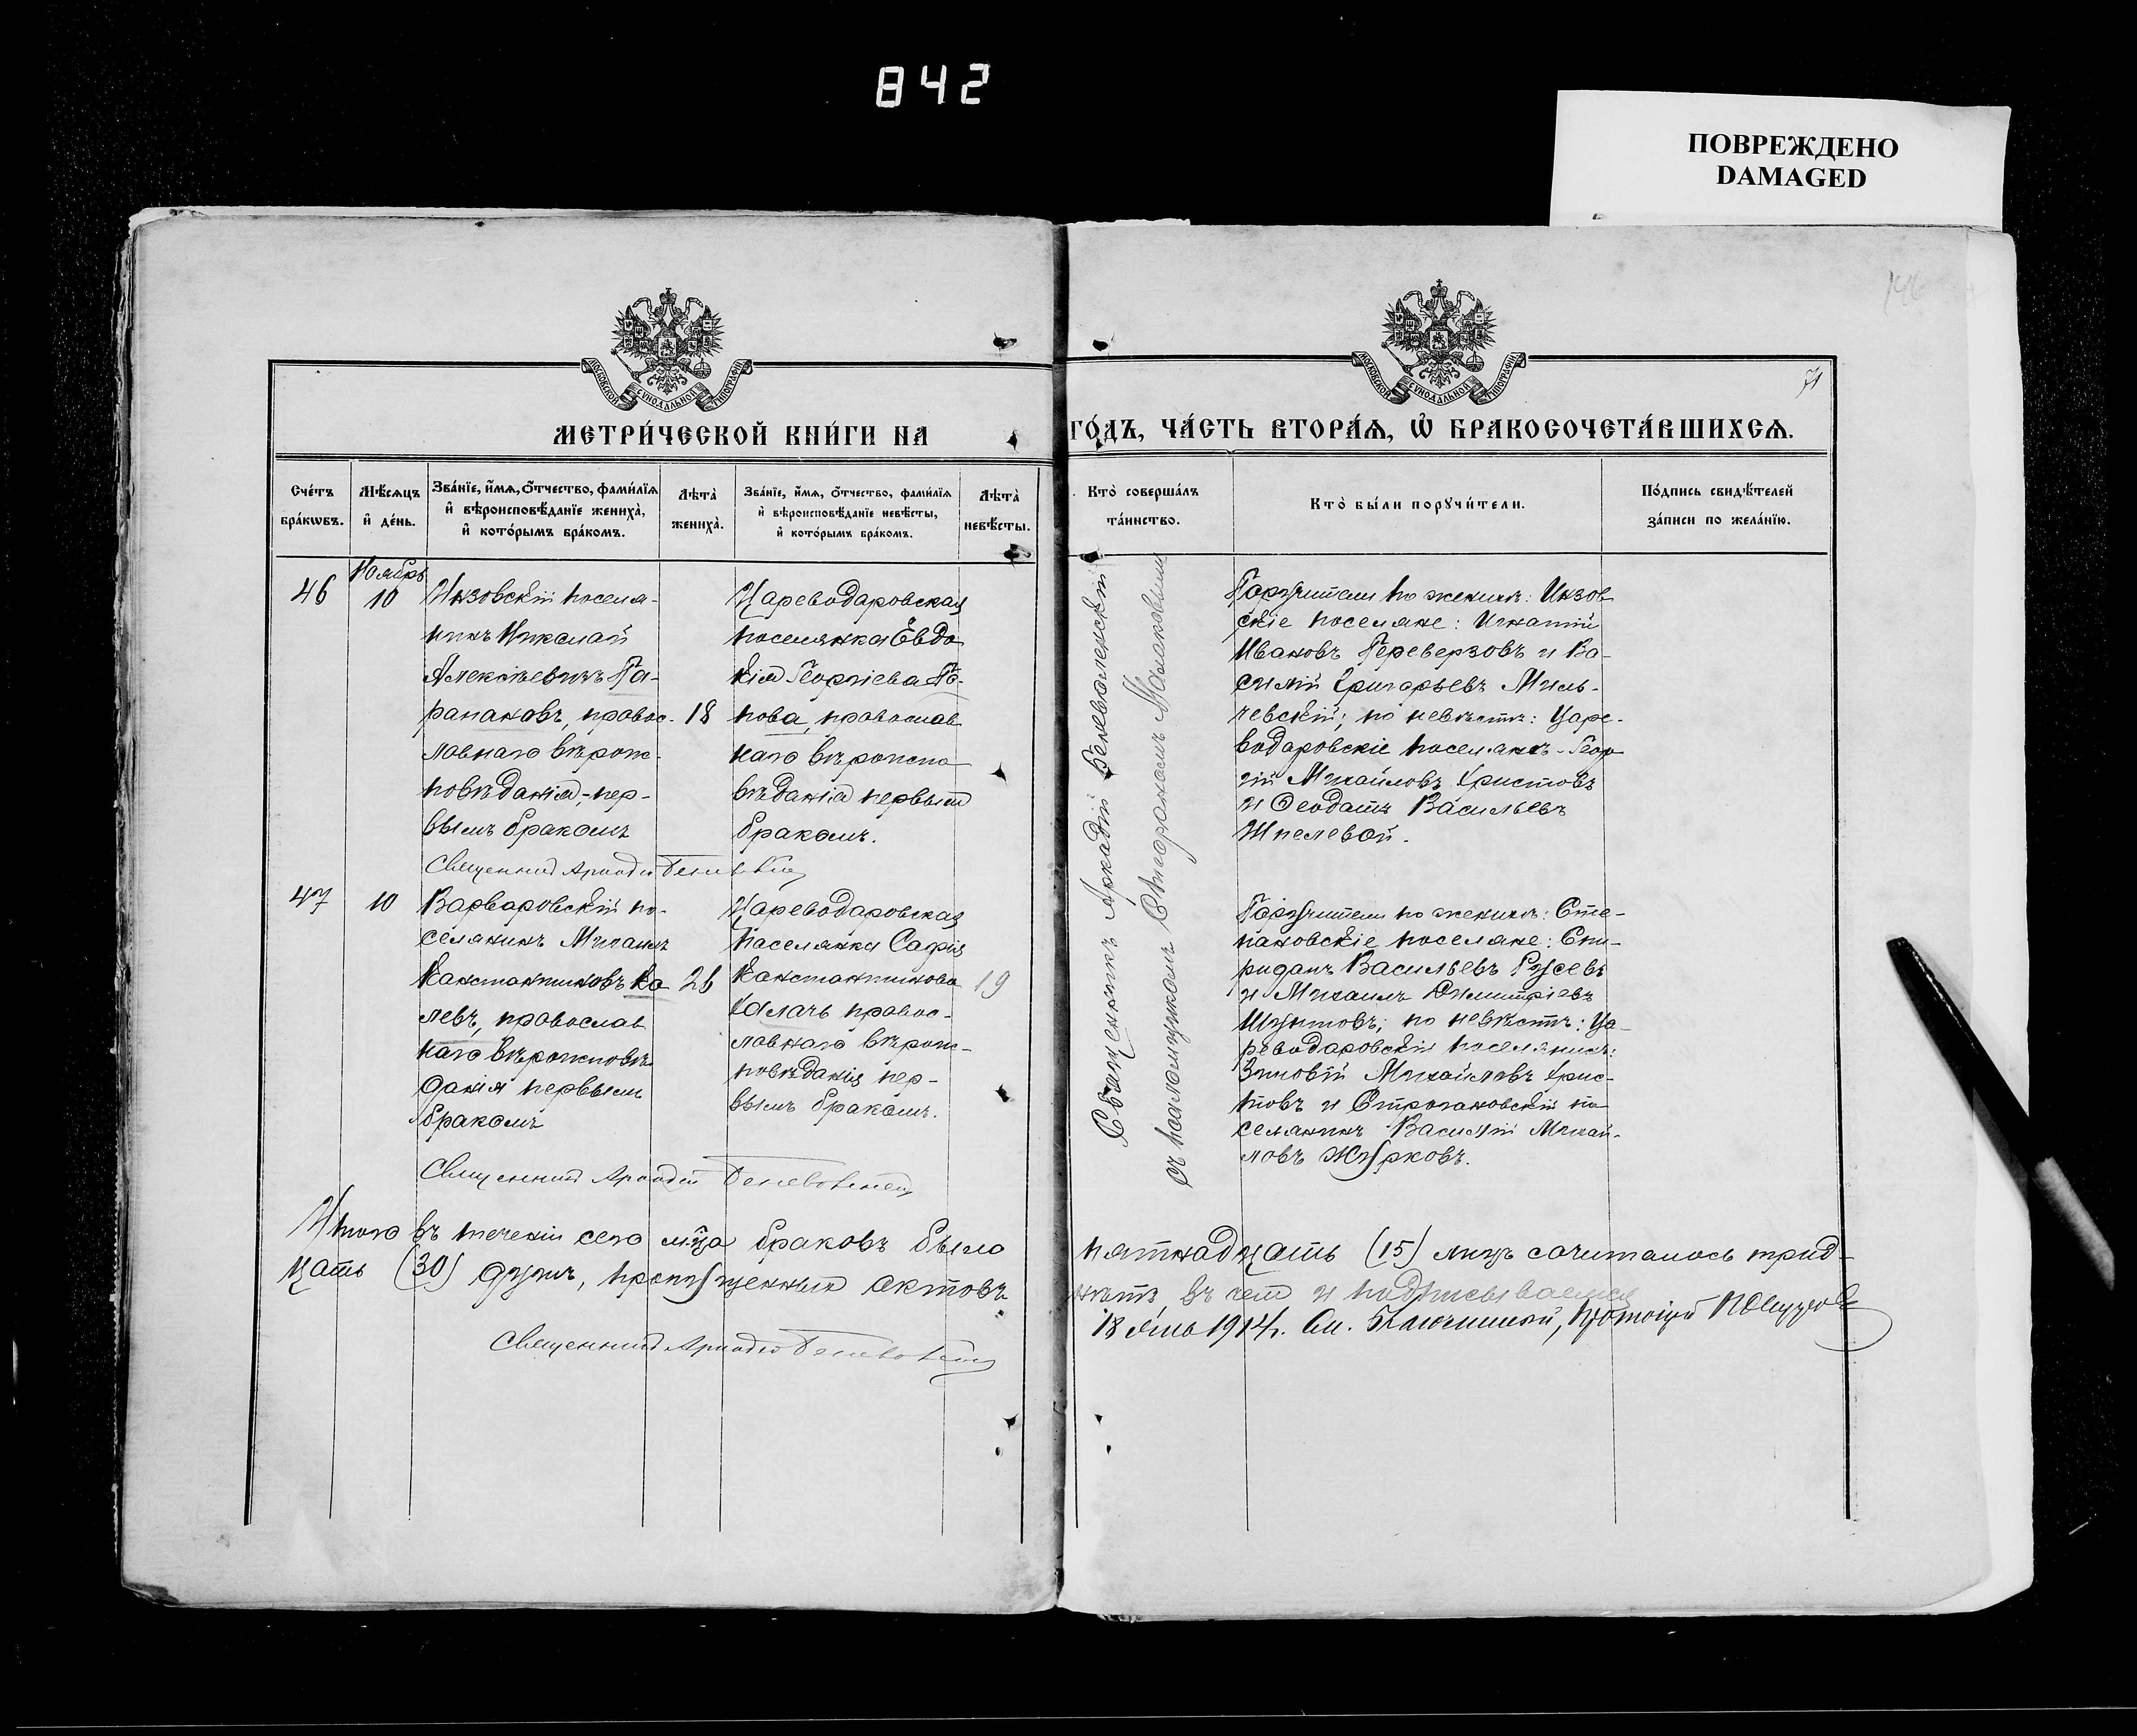 842
ПОВРЕЖДЕНО
DAMAGED
71
МЕТРИ́ЧЕСКОЙ КНИ́ГИ НА
ГО́ДЪ, ЧА́СТЬ ВТОРА́Ѧ, Ѽ БРАКОСОЧЕТА́ВШИХСѦ.
Сче́тъ бра́кѡвъ.
Мѣ́сѧцъ и҆ де́нь.
Зва́нїе, и҆́мѧ, ѻ҆́тчество, фами́лїѧ
и҆ вѣроисповѣ́данїе жениха̀,
и҆ кото́рымъ бра́комъ.
Лѣта̀ жениха̀.
Зва́нїе, и҆́мѧ, ѻ҆́тчество, фами́лїѧ
и҆ вѣроисповѣ́данїе невѣ́сты,
и҆ кото́рымъ бра́комъ.
Лѣта̀ невѣ́сты.
Кто̀ соверша́лъ
та́инство.
Кто̀ бы́ли порꙋчи́тели.
По́дпись свидѣ́телей
за́писи по жела́нїю.
46
Ноябрь
10
Инзовскій поселя-
нинъ Николай
Алексѣевичъ Па-
рапановъ, правос-
лавнаго вѣроис-
повѣданія, пер-
вымъ бракомъ
18
Цареводаровская
поселянка Евдо
кія Георгіева По-
пова, православ
наго вѣроиспо
вѣданія первым
бракомъ.
Священникъ Аркадій Беневоленскій
съ псаломщикомъ
Поручители по женихѣ: Инзов
скіе поселяне: Игнатій
Ивановъ Переверзовъ и Ва-
силій Григорьевъ Миль-
чевскій; по невѣстѣ: Царе-
водаровскіе поселяне - Геор
гій Михайловъ Христовъ
и Феодотъ Васильевъ
Шпелевой.
Священникъ Аркадій Беневоленскій
47
10
Варваровскій по-
селянинъ Михаилъ
Константиновъ Ко
левъ, православ
наго вѣроисповѣ
данія первымъ
бракомъ
26
Цареводаровская
поселянка Софія
Константинова
Калачъ правос-
лавнаго вѣроис-
повѣданія пер-
вымъ бракомъ.
19
Поручители по женихѣ: Сте-
пановскіе поселяне: Спи-
ридонъ Васильевъ Русевъ
и Михаилъ Димитріевъ
по невѣстѣ: Ца-
реводаровскій поселянинъ:
Зиновій Михайловъ Хрис-
товъ и Строгановскій по
селянинъ Василій Михай-
ловъ Журковъ.
Священникъ Аркадій Беневоленскій
Итого въ теченіи сего мѣсяца браковъ было пятнадцать (15) лицъ сочиталось трид-
цать (30) душъ, пропущенныхъ актовъ нѣтъ, въ чем и подписываемся
Священникъ Аркадій Беневоленскій
18 1914г.